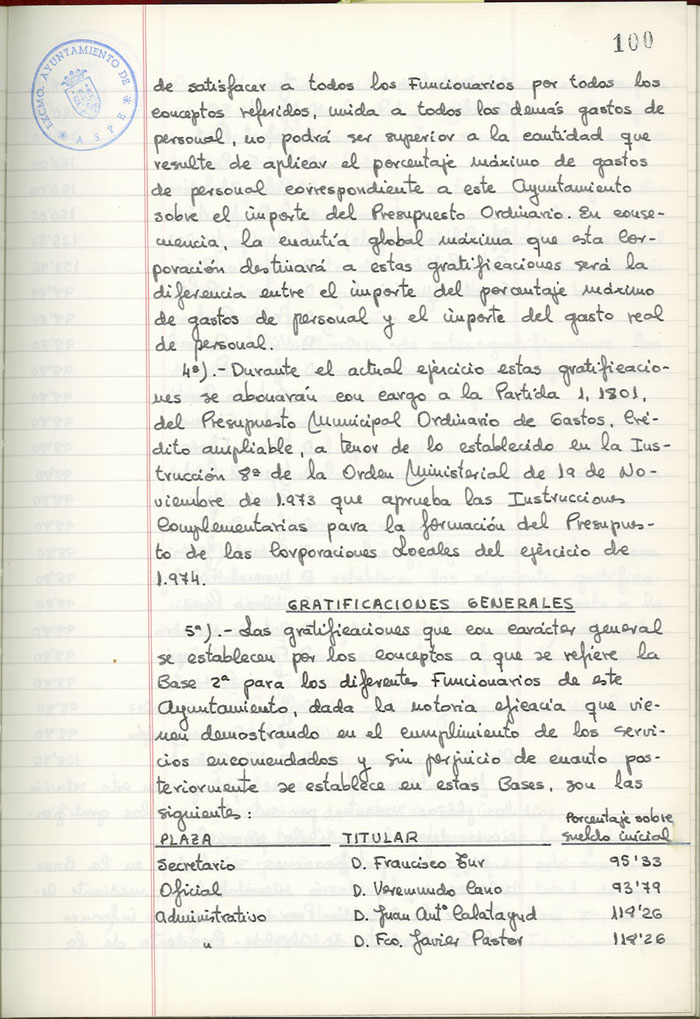 100
EXCMO. AYUNTAMIENTO DE
* ASPE *
de satisfacer a todos los Funcionarios por todos los
conceptos referidos, unida a todos los demás gastos de
personal, no podrá ser superior a la cantidad que
resulte de aplicar el porcentaje máximo de gastos
de personal correspondiente a este Ayuntamiento
sobre el importe del Presupuesto Ordinario. En conse-
cuencia, la cuantía global máxima que esta Cor-
poración destinará a estas gratificaciones será la
diferencia entre el importe del porcentaje máximo
de gastos de personal y el importe del gasto real
de personal.
4ª).- Durante el actual ejercicio estas gratificacio-
nes se abonarán con cargo a la Partida 1, 1801,
del Presupuesto Municipal Ordinario de Gastos, Cré-
dito ampliable, a tenor de lo establecido en la Ins-
trucción 8ª de la Orden Ministerial de 19 de No-
viembre de 1.973 que aprueba las Instrucciones
Complementarias para la formación del Presupues-
to de las Corporaciones Locales del ejercicio de
1.974.
GRATIFICACIONES GENERALES
5ª).- Las gratificaciones que con carácter general
se establecen por los conceptos a que se refiere la
Base 2ª para los diferentes Funcionarios de este
Ayuntamiento, dada la notoria eficacia que vie-
nen demostrando en el cumplimiento de los servi-
cios encomendados y sin perjuicio de cuanto pos-
teriormente se establece en estas Bases, son las
siguientes:
PLAZA TITULAR Porcentaje sobre sueldo inicial
Secretario D. Francisco Tur 95'33
Oficial D. Veremundo Cano 93'79
Administrativo D. Juan Antº Calatayud 119'26
" D. Fco. Javier Pastor 118'26